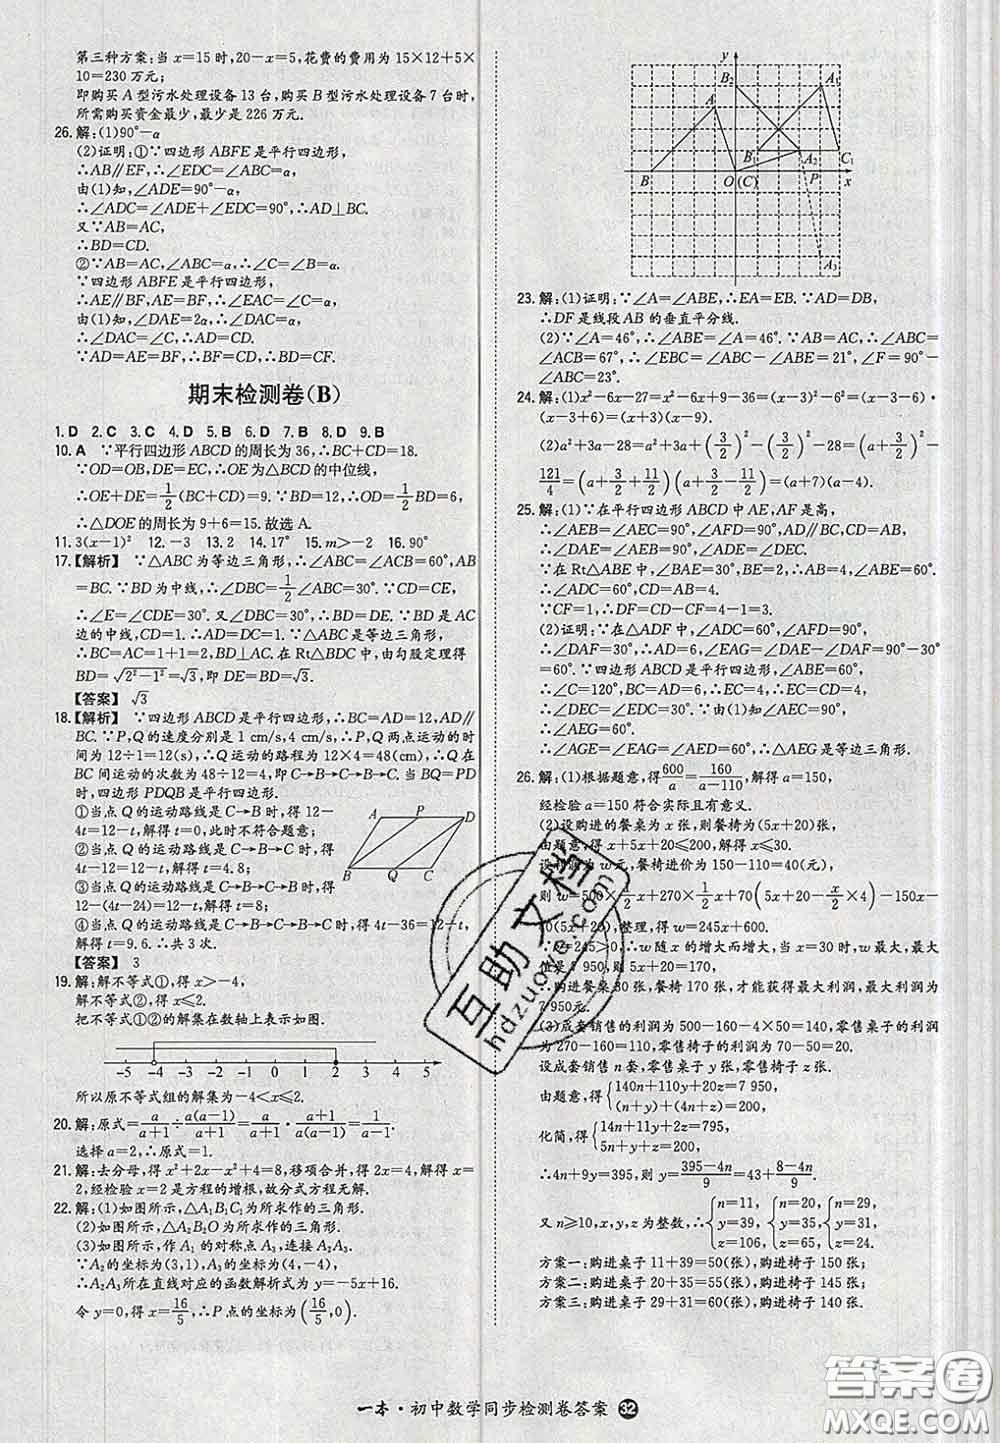 第三种方案:当x=15时,20-x=5,花费的费用为15×12+5×
10=230万元;
即购买A型污水处理设备13台,购买B型污水处理设备7台时,
所需购买资金最少,最少是226万元.
26.解:(1)90°-α
(2)证明:①∵四边形ABFE是平行四边形,
∴AB∥EF,∴∠EDC=∠ABC=α,
由(1)知,∠ADE=90°-α,
∴∠ADC=∠ADE+∠EDC=90°,∴AD⊥BC.
又∵AB=AC,
∴BD=CD.
②∵AB=AC,∠ABC=α,∴∠C=∠B=α.
∵四边形ABFE是平行四边形,
∴AE∥BF,AE=BF,∴∠EAC=∠C=α,
由(1)知,∠DAE=2α,∴∠DAC=α,
∴∠DAC=∠C,∴AD=CD.
∵AD=AE=BF,∴BF=CD,∴BD=CF.
期末检测卷(B)
1.D 2.C 3.C 4.D 5.B 6.D 7.B 8.D 9.B
10.A ∵平行四边形ABCD的周长为36,∴BC+CD=18.
∵OD=OB,DE=EC,∴OE为△BCD的中位线,
∴OE+DE=1/2(BC+CD)=9.∵BD=12,∴OD=1/2BD=6,
∴△DOE的周长为9+6=15.故选A.
11.3(x-1)² 12.-3 13.2 14.17° 15.m>-2 16.90°
17.【解析】∵△ABC为等边三角形,∴∠ABC=∠ACB=60°,AB
=BC.∵BD为中线,∴∠DBC=1/2∠ABC=30°.∵CD=CE,
∴∠E=∠CDE=30°.又∠DBC=30°,∴BD=DE.∵BD是AC
边的中线,CD=1.∴AD=DC=1.∵△ABC是等边三角形,
∴BC=AC=1+1=2,BD⊥AC.在Rt△BDC中,由勾股定理得
BD=√2²-1²=√3,即DE=BD=√3.
【答案】 √3
18.【解析】∵四边形ABCD是平行四边形,∴BC=AD=12,AD∥
BC.∵P,Q的速度分别是1 cm/s,4 cm/s,∴P,Q两点运动的
时间为12÷1=12(s),∴Q运动的路程为12×4=48(cm),∴Q在
BC间运动的次数为48÷12=4,即C→B→C→B→C.当BQ=PD
时,四边形PDQB是平行四边形.
①当点Q的运动路线是C→B时,得12-
4t=12-t,解得t=0,此时不符合题意;
②当点Q的运动路线是C→B→C时,得
4t-12=12-t,解得t=4.8;
③当点Q的运动路线是C→B→C→B时,得
12-(4t-24)=12-t,解得t=8;
④当点Q的运动路线是C→B→C→B→C时,得4t-36=12-t,
解得t=9.6.∴共3次.
【答案】 3
A P D
B Q C
19.解:解不等式①,得x>-4,
解不等式②,得x≤2.
把不等式①②的解集在数轴上表示如图.
-5 -4 -3 -2 -1 0 1 2 3 4 5
所以原不等式组的解集为-4<x≤2.
20.解:原式=a/(a+1)÷a(a-1)/(a+1)=a/(a+1)·(a+1)/a(a-1)=1/(a-1).
选择a=2,∴原式=1.
21.解:去分母,得x²+2x-x²+4=8,移项合并,得2x=4,解得x=
2,经检验x=2是方程的增根,故分式方程无解.
22.解:(1)如图所示,△A₁B₁C₁为所求作的三角形.
(2)如图所示,△A₂B₂O为所求作的三角形.
(3)如图所示,作A₁的对称点A₃,连接A₂A₃.
∵A₂的坐标为(3,1),A₃的坐标为(4,-4),
∴A₂A₃所在直线对应的函数解析式为y=-5x+16.
令y=0,得x=16/5,∴P点的坐标为(16/5,0).
y
B₂ A₁
A
B₁ A₂ C₁
B O (C) P x
A₃
23.解:(1)证明:∵∠A=∠ABE,∴EA=EB.∵AD=DB,
∴DF是线段AB的垂直平分线.
(2)∵∠A=46°,∴∠ABE=∠A=46°.∵AB=AC,∴∠ABC=
∠ACB=67°,∴∠EBC=∠ABC-∠ABE=21°,∠F=90°-
∠ABC=23°.
24.解:(1)x²-6x-27=x²-6x+9-36=(x-3)²-6²=(x-3+6)·
(x-3-6)=(x+3)(x-9).
(2)a²+3a-28=a²+3a+(3/2)²-(3/2)²-28=(a+3/2)²-
121/4=(a+3/2+11/2)(a+3/2-11/2)=(a+7)(a-4).
25.解:(1)∵在平行四边形ABCD中AE,AF是高,
∴∠AEB=∠AEC=90°,∠AFD=90°,AD∥BC,AB=CD,
∴∠DAE=∠AEB=90°,∠ADE=∠DEC.
∵在Rt△ABE中,∠BAE=30°,BE=2,∴AB=4,∠B=60°.
∴CD=4,∠ADC=60°.
∵CF=1,∴DF=CD-CF=4-1=3.
(2)证明:∵在△ADF中,∠ADC=60°,∠AFD=90°,
∴∠DAF=30°,AD=2DF=6,∴∠EAG=∠EAD-∠DAF=90°-30°
=60°.∵四边形ABCD是平行四边形,∴BC=AD=6,CD=AB=4,
∴∠C=120°,BC-BE=6-2=4,∴EC=CD=4,
∴∠DEC=∠EDC=30°.∵由(1)知∠AEC=90°,
∴∠AEG=60°.
∴∠AGE=∠EAG=∠AED=60°,∴△AEG是等边三角形.
26.解:(1)根据题意,得600/a=160/(a-110),解得a=150,
经检验a=150符合实际且有意义.
(2)设购进的餐桌为x张,则餐椅为(5x+20)张,
由题意,得x+5x+20≤200,解得x≤30.
设利润为w元,餐椅进价为150-110=40(元),
则w=500×1/2x+270×1/2x+70(5x+20-x/2×4)-150x-
40(5x+20),整理,得w=245x+600.
∵k=245>0,∴w随x的增大而增大,∴当x=30时,w最大,最大
值是7 950.
∴购进餐桌30张,餐椅170张,才能获得最大利润,最大利润为
7 950元.
(3)成套销售的利润为500-160-4×50=140,零售桌子的利润
为270-160=110,零售椅子的利润为70-50=20.
设成套销售n套,零售桌子y张,零售椅子z张,
由题意,得{140n+110y+20z=7 950,
(n+y)+(4n+z)=200,
化简,得{14n+11y+2z=795,
5n+y+z=200,
∴4n+9y=395,则y=(395-4n)/9=43+(8-4n)/9.
又n≥10,x,y,z为整数,∴{n=11, {n=20, {n=29,
y=39, y=35, y=31,
z=106, z=65, z=24.
方案一:购进桌子11+39=50(张),购进椅子150张;
方案二:购进桌子20+35=55(张),购进椅子145张;
方案三:购进桌子29+31=60(张),购进椅子140张.
互助文档
hdzuowe.com
一本·初中数学同步检测卷答案 32
答案圈
MXQE.COM